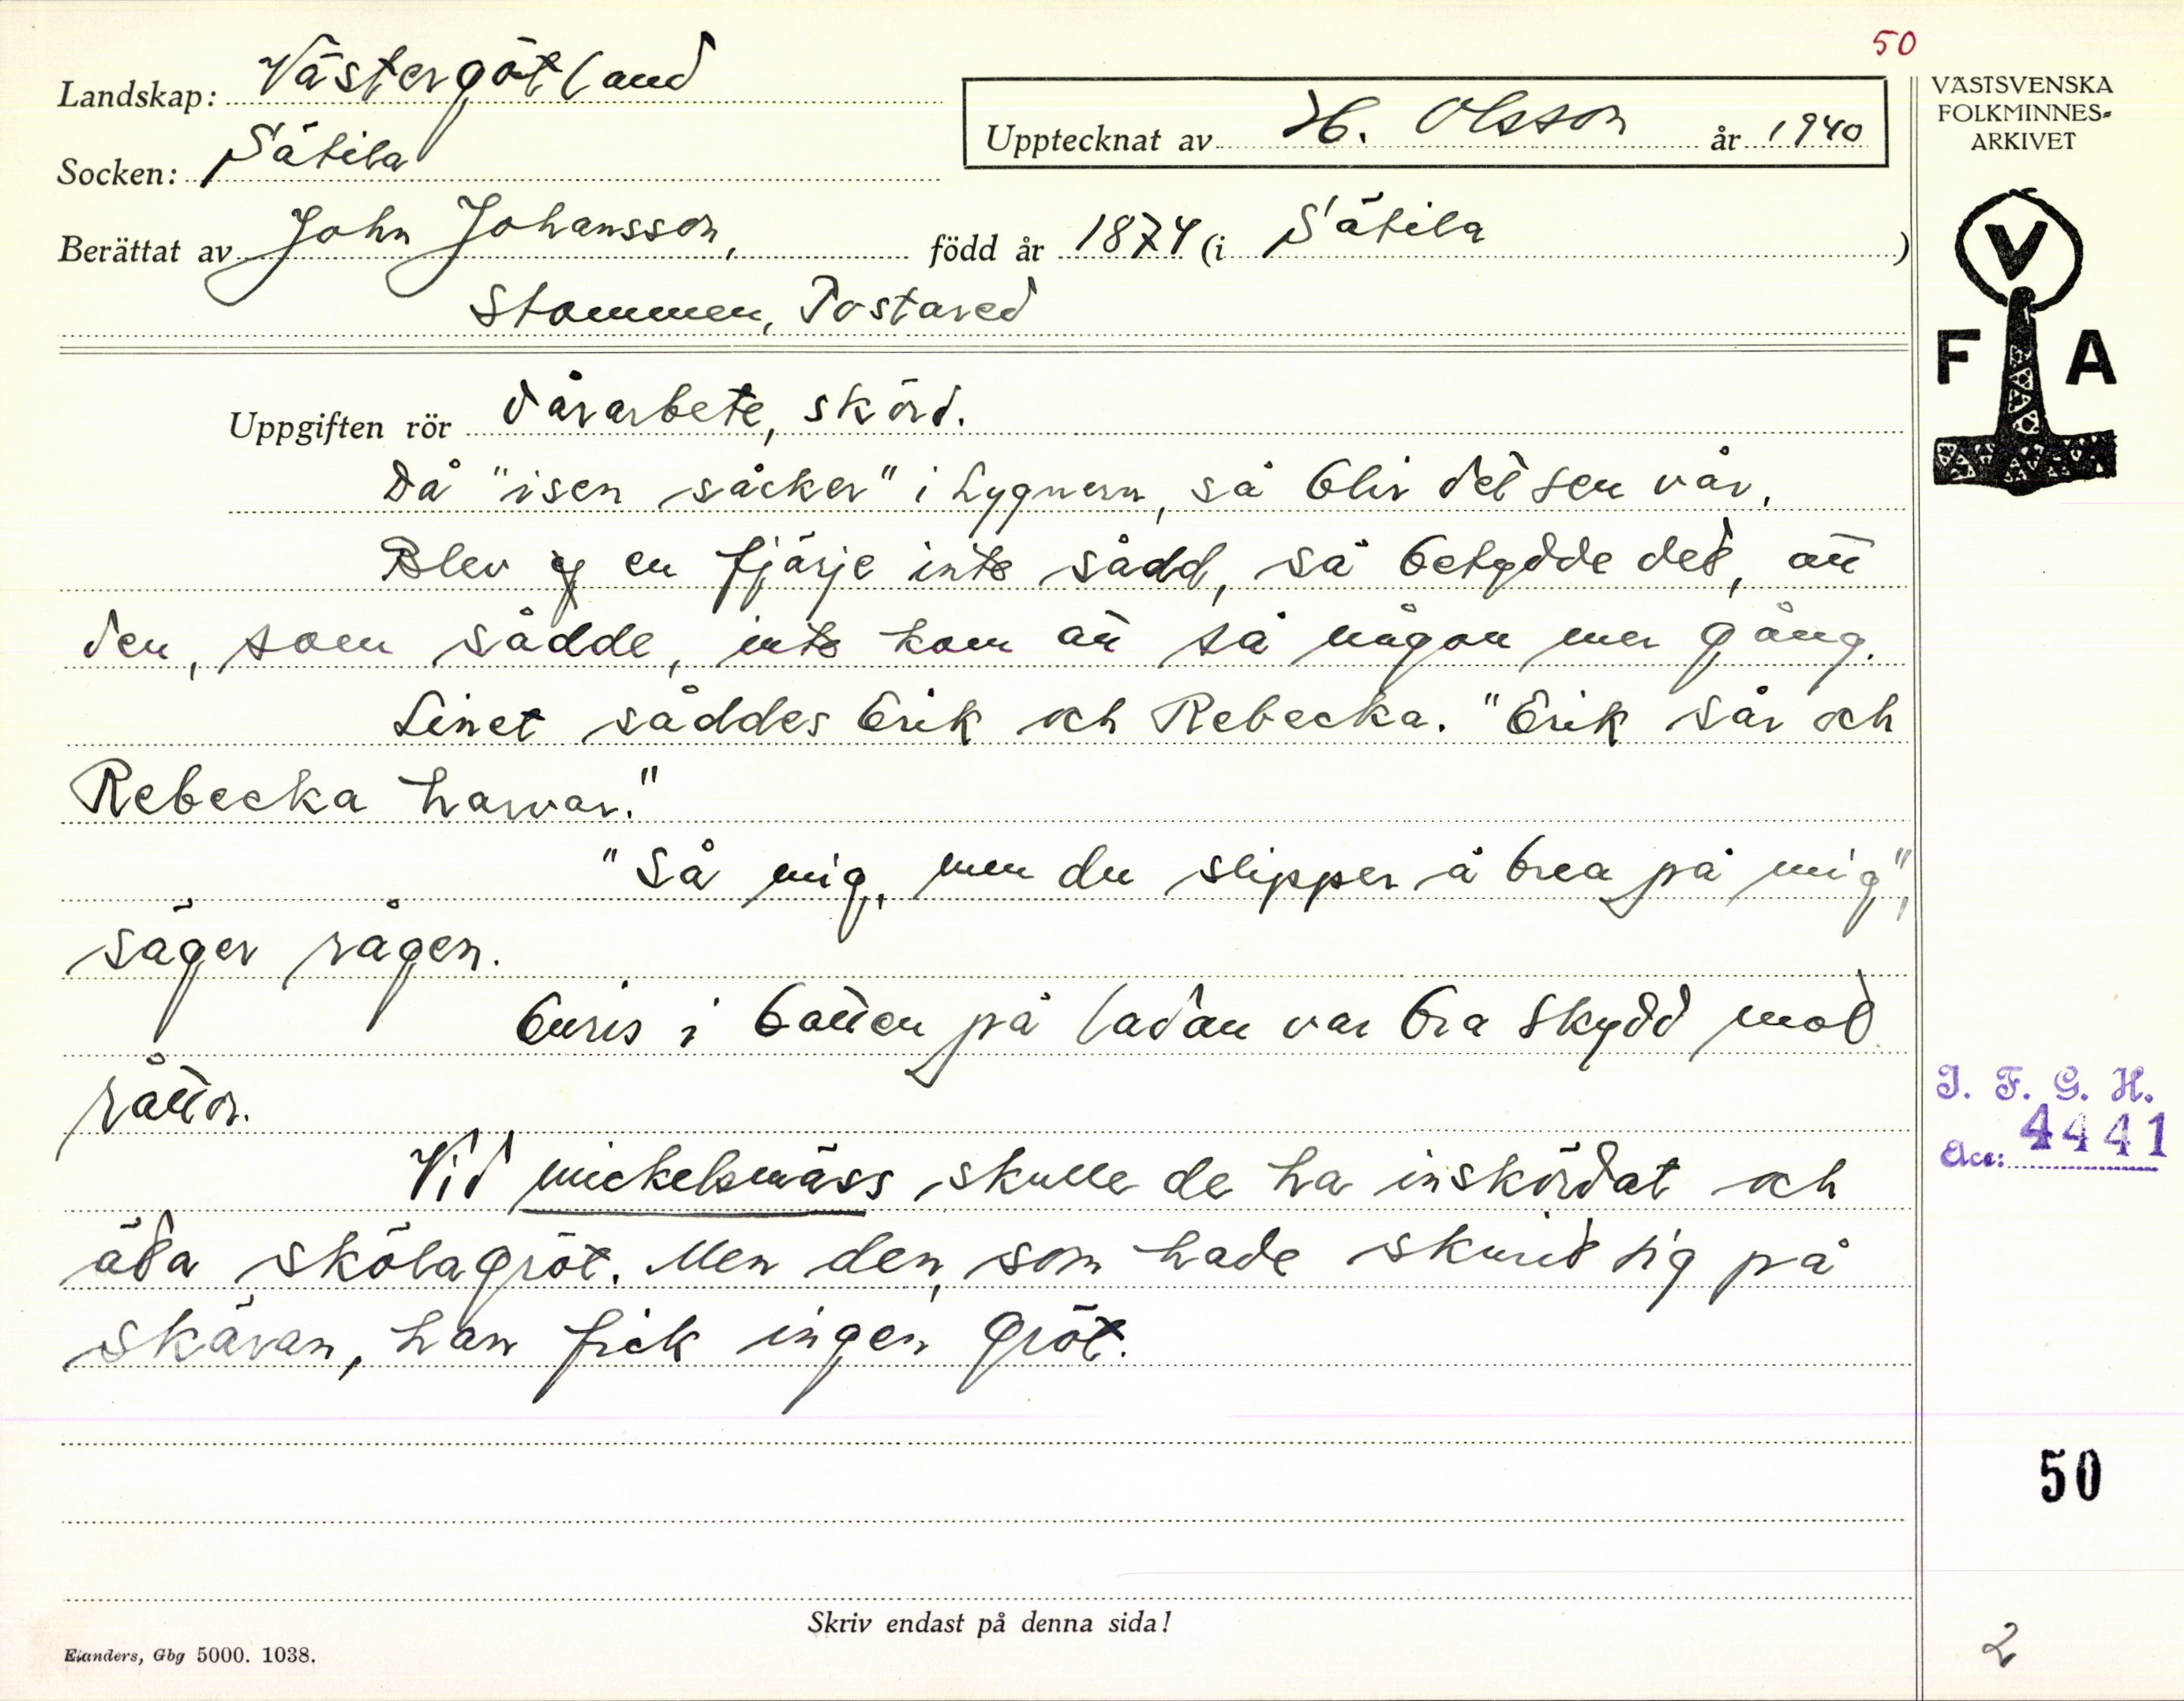 50
Landskap: Västergötland
Socken: Sätila
Upptecknat av H. Olsson år 1940
Berättat av John Johansson, född år 1874 (i Sätila )
Stommen, Tostared
VÄSTSVENSKA
FOLKMINNES-
ARKIVET
V
F A
Uppgiften rör Vårarbete, skörd.
Då "isen såcker" i Lygnern, så blir det sen vår.
Blev en fjärje inte sådd, så betydde det, att
den, som sådde, inte kom att så någon mer gång.
Linet såddes Erik och Rebecka. "Erik sår och
Rebecka harvar."
"Så mig, men du slipper å brea på mig",
säger rågen.
Enris i botten på ladan var bra skydd mot
råttor.
Vid mickelsmäss skulle de ha inskördat och
äta skölagröt. Men den, som hade skurit sig på
skäran, han fick ingen gröt.
I. F. G. H.
Acc: 4441
50
Skriv endast på denna sida!
Elanders, Gbg 5000. 1038.
2